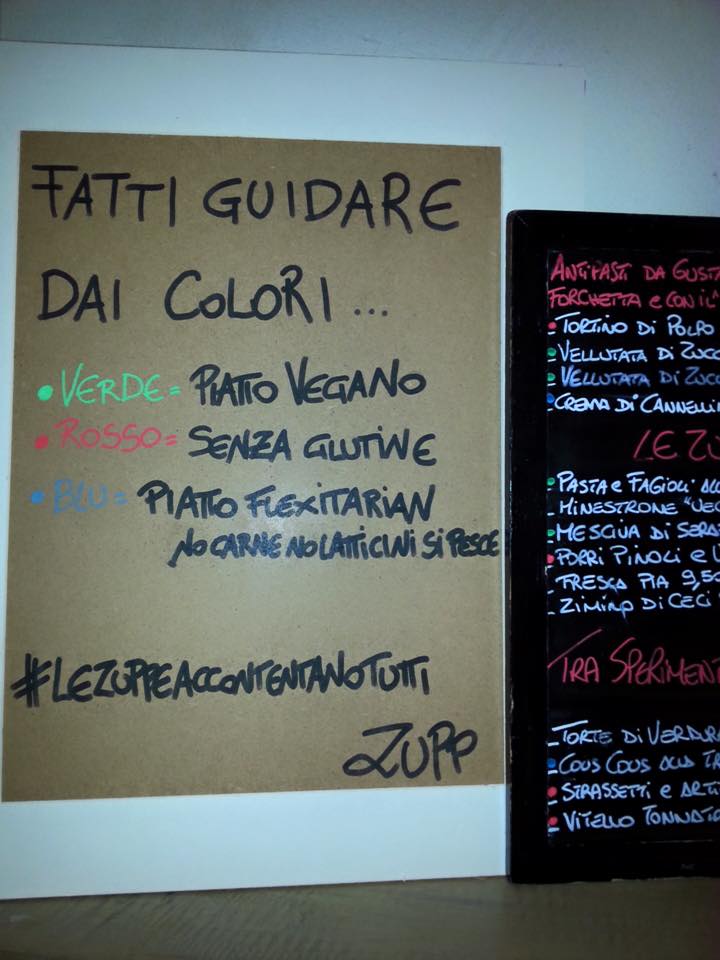 FATTI GUIDARE
DAI COLORI ...
• VERDE = PIATTO VEGANO
• ROSSO = SENZA GLUTINE
• BLU = PIATTO FLEXITARIAN
NO CARNE NO LATTICINI SI PESCE
#LEZUPPEACCONTENTANOTUTTI
ZUPP
ANTIPASTI DA GUSTA
FORCHETTA e CON IL
- TORTINO DI POLPO
- VELLUTATA DI ZUCC
- VELLUTATA DI ZUCC
- CREMA DI CANNELLI
LE ZU
- PASTA e FAGIOLI ALL
MINESTRONE "VEG
- MESCIUA DI SERA
- PORRI PINOLI e
- FRESCA PIA 9,50
- ZIMINO DI CECI
TRA SPERIMENT
- TORTE DI VERDURA
- COUS COUS ALLA TR
- STRASSETTI e ARTI
- VITELLO TONNATO